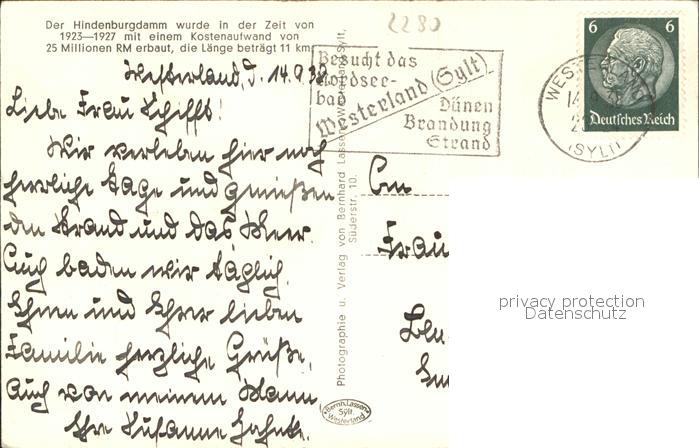 Der Hindenburgdamm wurde in der Zeit von
1923—1927 mit einem Kostenaufwand von
25 Millionen RM erbaut, die Länge beträgt 11 km.
2280
Westerland, d. 14.9.38
Liebe Frau Schifft!
Wir verleben hier noch
herrliche Tage und genießen
den Strand und das Meer.
Auch baden wir täglich.
Ihnen und Ihrer lieben
Familie herzliche Grüße,
auch von meinem Mann
Ihre Susanne
Photographie u. Verlag von Bernhard Lassen, Westerland-Sylt,
Süderstr. 10.
Bernh. Lassen
Sylt
Westerland
Besucht das
Nordsee-
bad
Westerland (Sylt)
Dünen
Brandung
Strand
WESTERLAND
(SYLT)
6 6
Deutsches Reich
An
Frau
privacy protection
Datenschutz